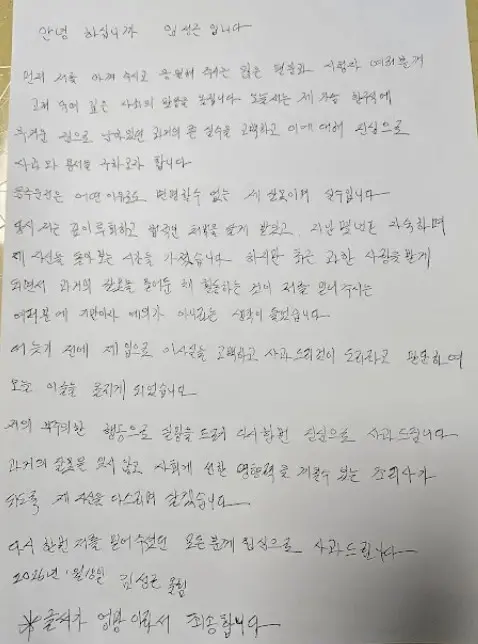 안녕 하십니까 임성근 입니다
먼저 저를 아껴 주시고 응원해 주시는 많은 팬분들과 시청자 여러분께
고개 숙여 깊은 사죄의 말씀을 올립니다 오늘 저는 제 가슴 한구석에
무거운 짐으로 남아있던 과거의 큰 실수를 고백하고 이에 대해 진심으로
사과와 용서를 구하고자 합니다
음주운전은 어떤 이유로도 변명할수 없는 제 잘못이며 실수입니다
당시 저는 깊이 후회하고 법적인 처벌을 달게 받았고, 지난 몇년은 자숙하며
제 자신을 돌아 보는 시간을 가졌습니다 하지만 최근 과한 사랑을 받게
되면서 과거의 잘못을 묻어둔 채 활동하는 것이 저를 믿어주시는
여러분에 기만이자 예의가 아니라는 생각이 들었습니다
더 늦기 전에 제 입으로 이사실을 고백하고 사과 드리것이 도리라고 판단하여
오늘 이글을 올리게 되었습니다
저의 부주의한 행동으로 실망을 드려 다시한번 진심으로 사과 드립니다
과거의 잘못을 잊지 않고 사회에 선한 영향력을 끼칠수 있는 조리사가
되도록 제 자신을 다스리며 살겠습니다
다시 한번 저를 믿어 주셨던 모든 분께 진심으로 사과드립니다
2026년 1월 임성근 올림
*글씨가 엉망 이라서 죄송합니다